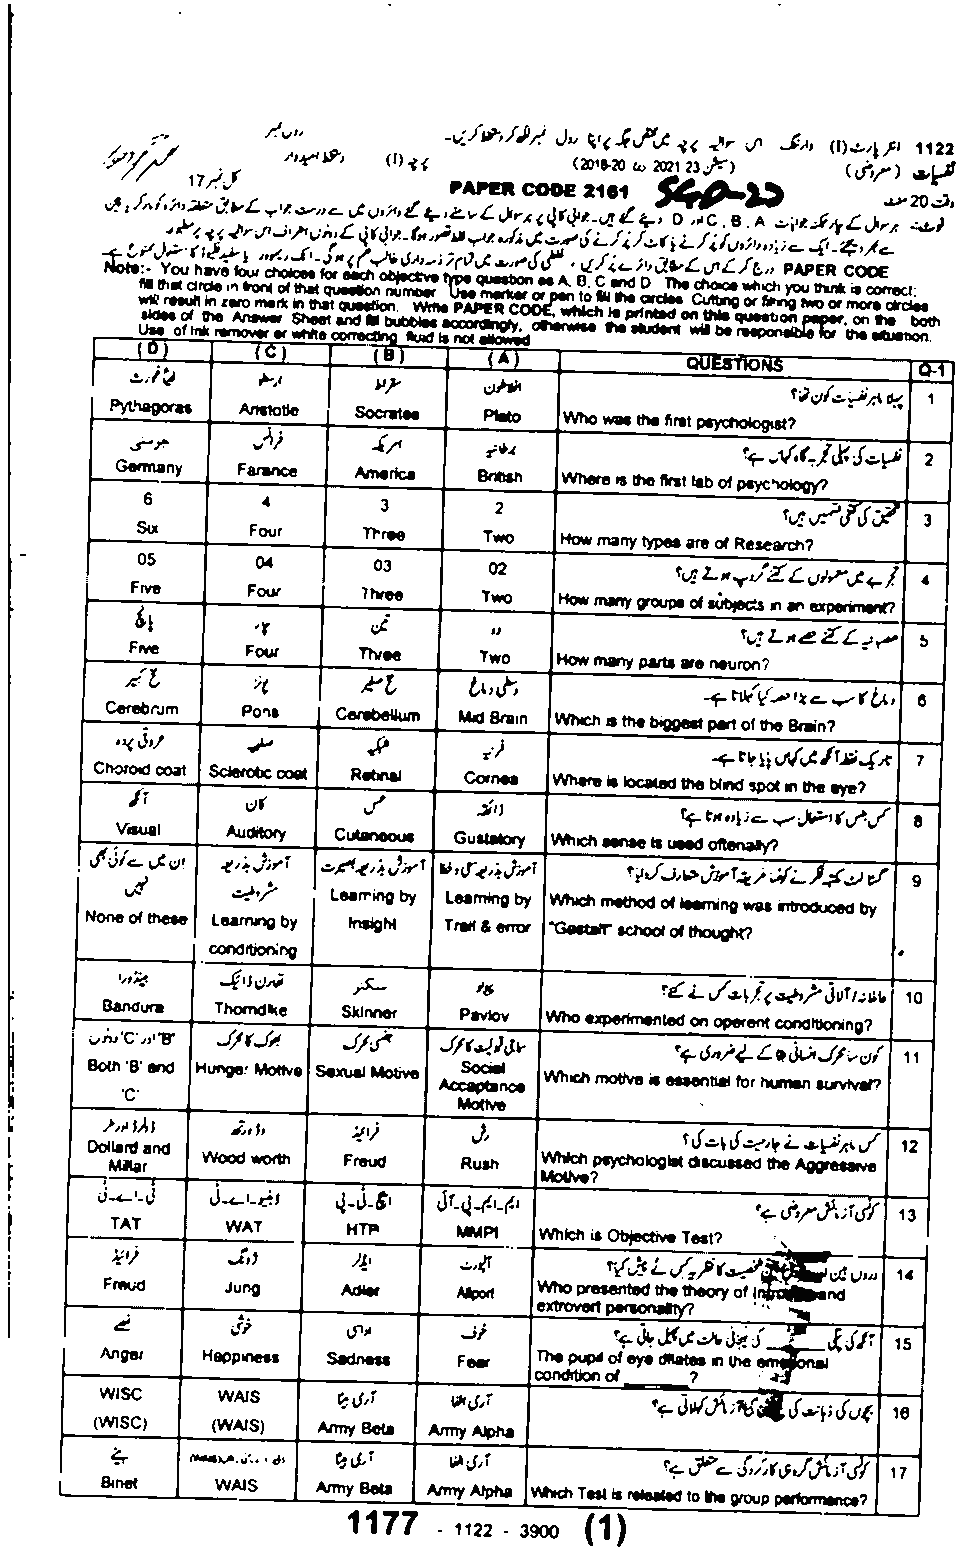 1122 انٹر پارٹ (I) وارننگ اس سوالیہ پرچہ میں مختص جگہ پر اپنا رول نمبر لکھ کر دستخط کریں۔ رول نمبر
نفسیات (معروضی) (سیشن 23-2021 تا 20-2018) پرچہ (I) دستخط امیدوار
وقت 20 منٹ PAPER CODE 2161 SGD-22 کل نمبر 17
Note:- You have four choices for each objective type question as A, B, C and D The choice which you think is correct;
fill that circle in front of that question number Use marker or pen to fill the circles Cutting or filling two or more circles
will result in zero mark in that question. Write PAPER CODE, which is printed on this question paper, on the both
sides of the Answer Sheet and fill bubbles accordingly, otherwise the student will be responsible for the situation.
Use of Ink remover or white correcting fluid is not allowed
(D) (C) (B) (A) QUESTIONS Q-1
فیثا غورث ارسطو سقراط افلاطون پہلا ماہر نفسیات کون تھا؟ 1
Pythagoras Aristotle Socrates Plato Who was the first psychologist?
جرمنی فرانس امریکہ برطانیہ نفسیات کی پہلی تجربہ گاہ کہاں ہے؟ 2
Germany Farance America British Where is the first lab of psychology?
6 4 3 2 تحقیق کی کتنی قسمیں ہیں؟ 3
Six Four Three Two How many types are of Research?
05 04 03 02 تجربے میں معمولوں کے کتنے گروپ ہوتے ہیں؟ 4
Five Four Three Two How many groups of subjects in an experiment?
پانچ چار تین دو عصبانیہ کے کتنے حصے ہوتے ہیں؟ 5
Five Four Three Two How many parts are neuron?
مخ کبیر پونز مخ صغیر وسطی دماغ دماغ کا سب سے بڑا حصہ کیا کہلاتا ہے۔ 6
Cerebrum Pons Cerebellum Mid Brain Which is the biggest part of the Brain?
عروقی پردہ صلبیہ شبکیہ قرنیہ تاریک نقطہ آنکھ میں کہاں پایا جاتا ہے۔ 7
Choroid coat Sclerotic coat Retinal Cornea Where is located the blind spot in the eye?
آنکھ کان لمس ذائقہ کس حس کا استعمال سب سے زیادہ ہوتا ہے؟ 8
Visual Auditory Cutaneous Gustatory Which sense is used oftenally?
ان میں سے کوئی بھی نہیں آموزش بذریعہ مشروطیت آموزش بذریعہ بصیرت آموزش بذریعہ سعی و خطا گسٹالٹ مکتبہ فکر نے کونسا طریقہ آموزش متعارف کروایا؟ 9
None of these Learning by conditioning Learning by Insight Learning by Trail & error Which method of learning was introduced by "Gestalt" school of thought?
بینڈورا تھارن ڈائیک سکنر پاولو عاملانہ / آلاتی مشروطیت پر تجربات کس نے کئے؟ 10
Bandura Thorndike Skinner Pavlov Who experimented on operent conditioning?
'B' اور 'C' دونوں بھوک کا محرک جنسی محرک سماجی قبولیت کا محرک کون سا محرک انسانی بقا کے لیے ضروری ہے؟ 11
Both 'B' and 'C' Hunger Motive Sexual Motive Social Acceptance Motive Which motive is essential for human survival?
ڈولرڈ اور ملر وڈ ورتھ فرائیڈ رش کس ماہر نفسیات نے جارحیت کی بات کی؟ 12
Dollard and Millar Wood worth Freud Rush Which psychologist discussed the Aggressive Motive?
ٹی۔اے۔ٹی ڈبلیو۔اے۔ٹی ایچ۔ٹی۔پی ایم۔ایم۔پی۔آئی کونسی آزمائش معروضی ہے؟ 13
TAT WAT HTP MMPI Which is Objective Test?
فرائیڈ ژونگ ایڈلر آلپورٹ دروں بین شخصیت کا نظریہ کس نے پیش کیا؟ 14
Freud Jung Adler Allport Who presented the theory of and extrovert personality?
غصے خوشی اداسی خوف آنکھ کی پتلی ______ کی ہیجانی حالت میں پھیل جاتی ہے؟ 15
Anger Happiness Sadness Fear The pupil of eye dilates in the emotional condition of ______ ?
WISC WAIS آرمی بیٹا آرمی الفا بچوں کی ذہانت کی آزمائش کہلاتی ہے؟ 16
(WISC) (WAIS) Army Beta Army Alpha
بینے آرمی بیٹا آرمی الفا کونسی آزمائش گروہی کارکردگی سے متعلق ہے؟ 17
Binet WAIS Army Beta Army Alpha Which Test is releated to the group performance?
1177 - 1122 - 3900 (1)